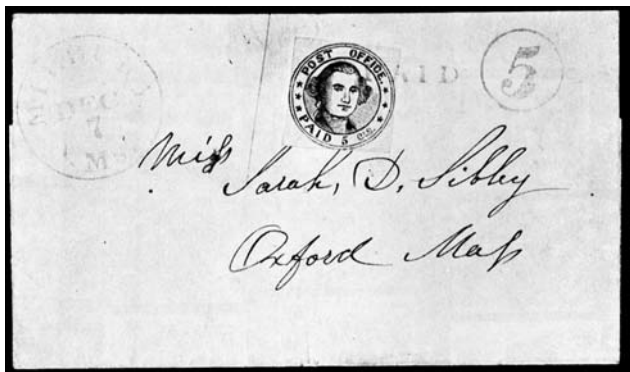 POST OFFICE.
PAID 5 Cts.
PAID 5
DEC
7
Ms
Miss
Sarah, D. Sibley
Oxford Mass